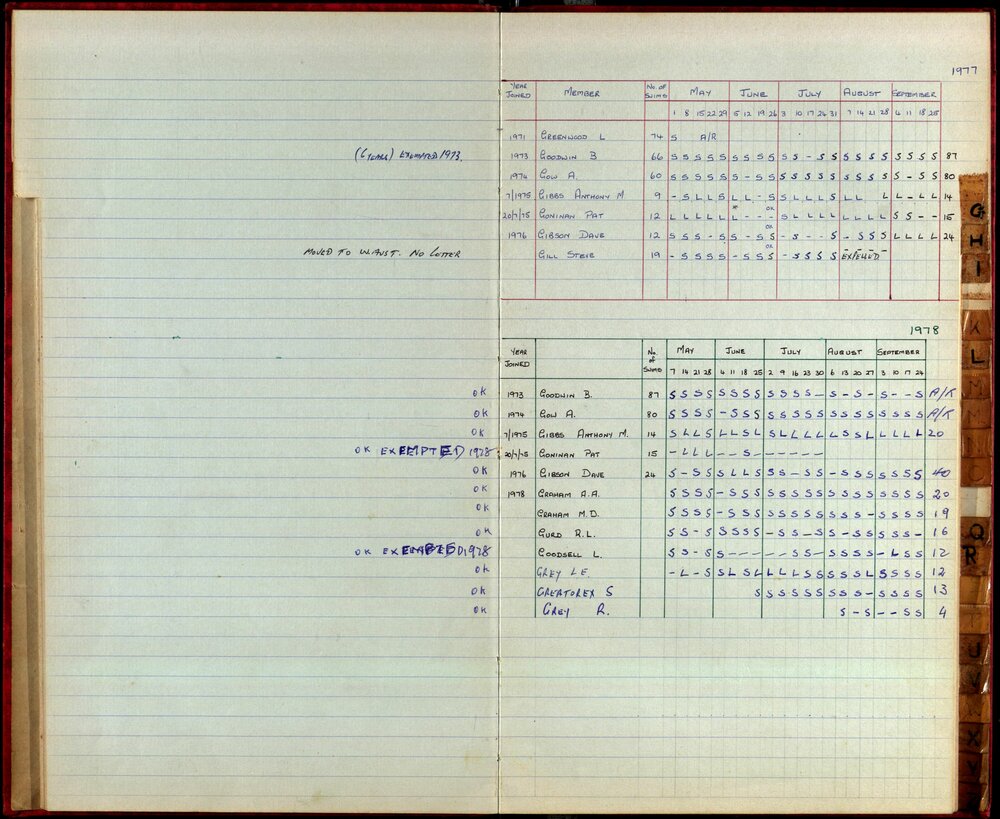 1977
YEAR JOINED MEMBER No. of SWIMS MAY JUNE JULY AUGUST SEPTEMBER
1 8 15 22 29 5 12 19 26 3 10 17 24 31 7 14 21 28 4 11 18 25
1971 GREENWOOD L 74 S A/R
(6 YEARS) EXEMPTED 1973. 1973 GOODWIN B 66 S S S S S S S S S S S - S S S S S S S S S S 87
1974 GOW A. 60 S S S S S S - S S S S S S S S S S S S - S S 80
7/1975 GIBBS ANTHONY M 9 - S L L S L L - S S L L L S L L L L - L L 14
20/7/75 GONINAN PAT 12 L L L L L L - - - OK S L L L L L L L L S S - - 15
1976 GIBSON DAVE 12 S S S - S S - S S OK - S - - S - S S S L L L L 24
MOVED TO W. AUST. NO LETTER GILL STEVE 19 - S S S S - S S S OK - S S S S
1978
YEAR JOINED No. of SWIMS MAY JUNE JULY AUGUST SEPTEMBER
7 14 21 28 4 11 18 25 2 9 16 23 30 6 13 20 27 3 10 17 24
OK 1973 GOODWIN B. 87 S S S S S S S S S S S S - S - S - S - - S A/R
OK 1974 GOW A. 80 S S S S - S S S S S S S S S S S S S S S S A/R
OK 7/1975 GIBBS ANTHONY M. 14 S L L S L L S L S L L L L L S S L L L L L 20
OK EXEMPTED 1978 20/7/75 GONINAN PAT 15 - L L L - - S - - - - - -
OK 1976 GIBSON DAVE 24 S - S S S L L S S S - S S - S S S S S S S 40
OK 1978 GRAHAM A.A. S S S S - S S S S S S S S S S S S S S S S 20
OK GRAHAM M.D. S S S S - S S S S S S S S S S S - S S S S 19
OK GURD R.L. S S - S S S S S - S S - S S - S S S S S - 16
OK EXEMPTED 1978 GOODSELL L. S S - S S - - - - - S S - S S S S - L S S 12
OK GREY L E. - L - S S L S L L L L S S S S S L S S S S 12
OK GREATOREX S S S S S S S S S S - S S S S 13
OK GREY R. S - S - - S S 4
G
H
I
K
L
M
N
O
Q
R
U
V
W
X
Y